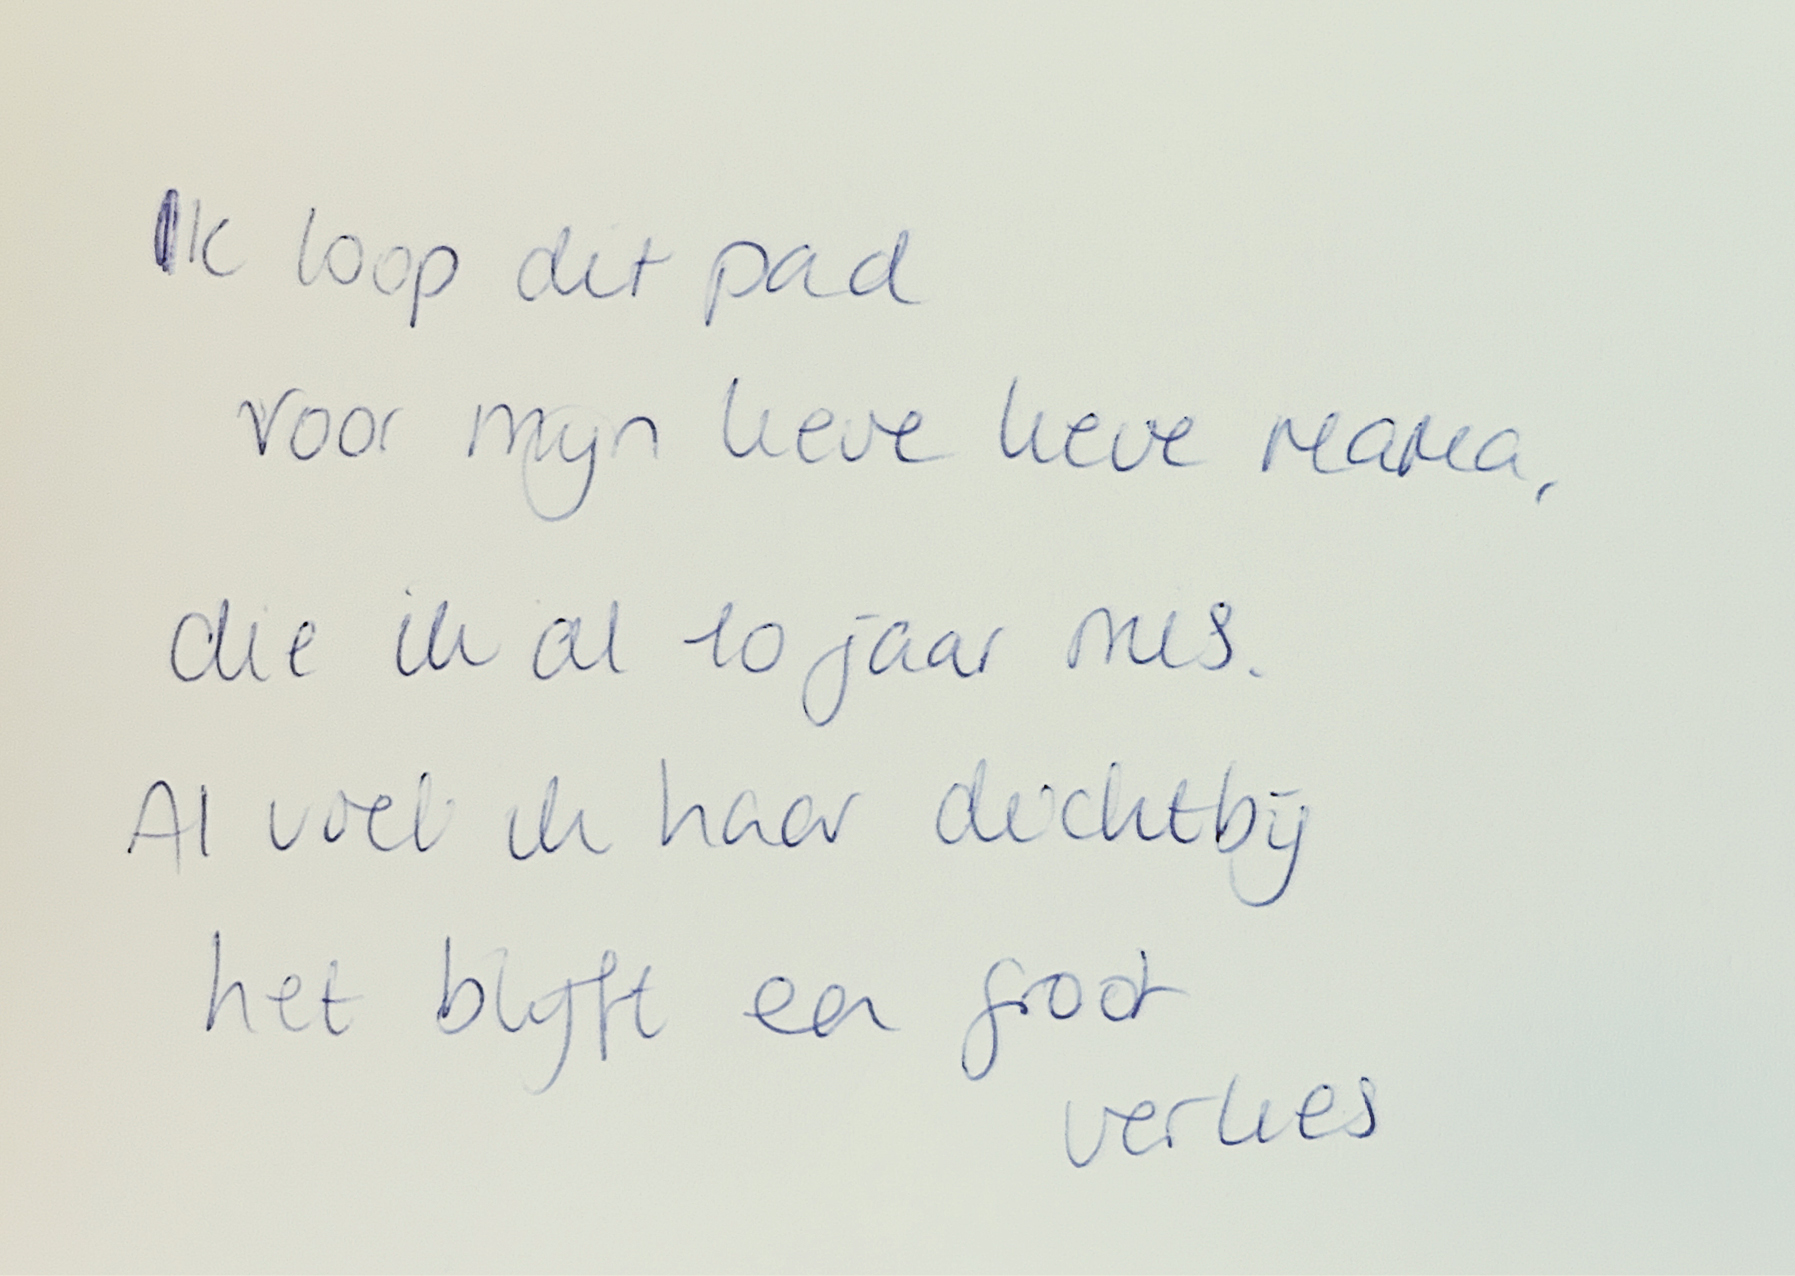 Ik loop dit pad
voor mijn lieve lieve mama,
die ik al 10 jaar mis.
Al voel ik haar dichtbij
het blijft een groot
verlies